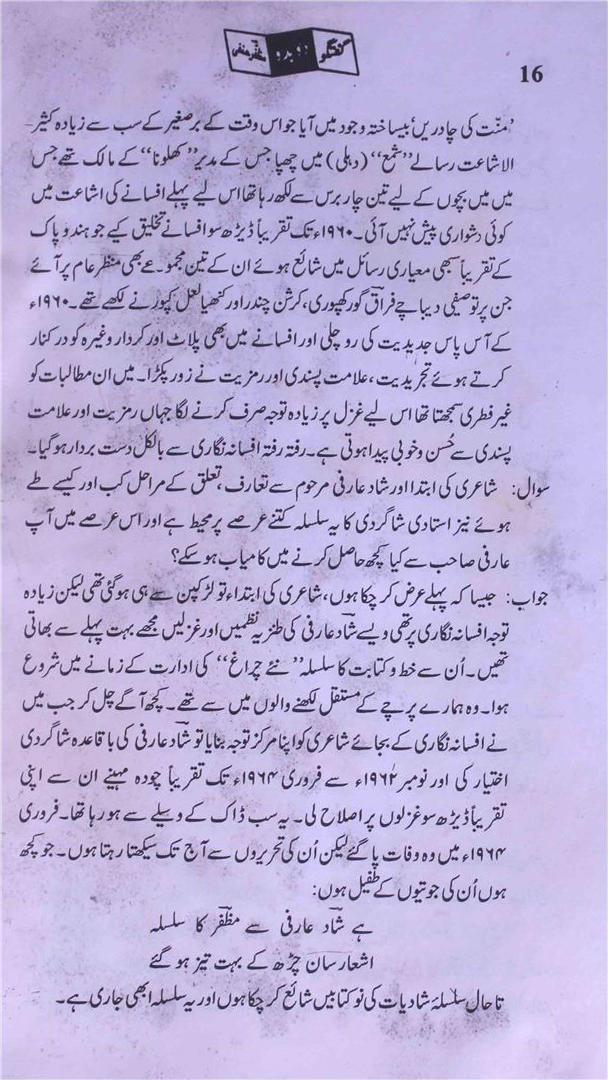 گفتگو دو بدو مظفر حنفی
16
’منّت کی چادریں‘ بیساختہ وجود میں آیا جو اس وقت کے برصغیر کے سب سے زیادہ کثیر۔
الاشاعت رسالے ”شمع“ (دہلی) میں چھپا جس کے مدیر ”کھلونا“ کے مالک تھے جس
میں میں بچوں کے لیے تین چار برس سے لکھ رہا تھا اس لیے پہلے افسانے کی اشاعت میں
کوئی دشواری پیش نہیں آئی۔ ۱۹۶۰ء تک تقریباً ڈیڑھ سو افسانے تخلیق کیے جو ہند و پاک
کے تقریباً سبھی معیاری رسائل میں شائع ہوئے ان کے تین مجموعے بھی منظر عام پر آئے
جن پر توصیفی دیباچے فراقؔ گورکھپوری، کرشن چندر اور کنھیا لعل کپور نے لکھے تھے۔ ۱۹۶۰ء
کے آس پاس جدیدیت کی رو چلی اور افسانے میں بھی پلاٹ اور کردار وغیرہ کو در کنار
کرتے ہوئے تجریدیت، علامت پسندی اور رمزیت نے زور پکڑا۔ میں ان مطالبات کو
غیر فطری سمجھتا تھا اس لیے غزل پر زیادہ توجہ صرف کرنے لگا جہاں رمزیت اور علامت
پسندی سے حُسن و خوبی پیدا ہوتی ہے۔ رفتہ رفتہ افسانہ نگاری سے بالکل دست بردار ہو گیا۔
سوال: شاعری کی ابتدا اور شاد عارفی مرحوم سے تعارف، تعلق کے مراحل کب اور کیسے طے
ہوئے نیز استادی شاگردی کا یہ سلسلہ کتنے عرصے پر محیط ہے اور اس عرصے میں آپ
عارفی صاحب سے کیا کچھ حاصل کرنے میں کامیاب ہو سکے؟
جواب: جیسا کہ پہلے عرض کر چکا ہوں، شاعری کی ابتداء تو لڑکپن سے ہی ہو گئی تھی لیکن زیادہ
توجہ افسانہ نگاری پر تھی ویسے شادؔ عارفی کی طنزیہ نظمیں اور غزلیں مجھے بہت پہلے سے بھاتی
تھیں۔ اُن سے خط و کتابت کا سلسلہ ”نئے چراغ“ کی ادارت کے زمانے میں شروع
ہوا۔ وہ ہمارے پرچے کے مستقل لکھنے والوں میں سے تھے۔ کچھ آگے چل کر جب میں
نے افسانہ نگاری کے بجائے شاعری کو اپنا مرکز توجہ بنایا تو شادؔ عارفی کی باقاعدہ شاگردی
اختیار کی اور نومبر ۱۹۶۲ء سے فروری ۱۹۶۴ء تک تقریباً چودہ مہینے ان سے اپنی
تقریباً ڈیڑھ سو غزلوں پر اصلاح لی۔ یہ سب ڈاک کے وسیلے سے ہو رہا تھا۔ فروری
۱۹۶۴ء میں وہ وفات پا گئے لیکن اُن کی تحریروں سے آج تک سیکھتا رہتا ہوں۔ جو کچھ
ہوں اُن کی جوتیوں کے طفیل ہوں:
ہے شادؔ عارفی سے مظفرؔ کا سلسلہ
اشعار سان چڑھ کے بہت تیز ہو گئے
تا حال سلسلۂ شادیات کی نو کتابیں شائع کر چکا ہوں اور یہ سلسلہ ابھی جاری ہے۔